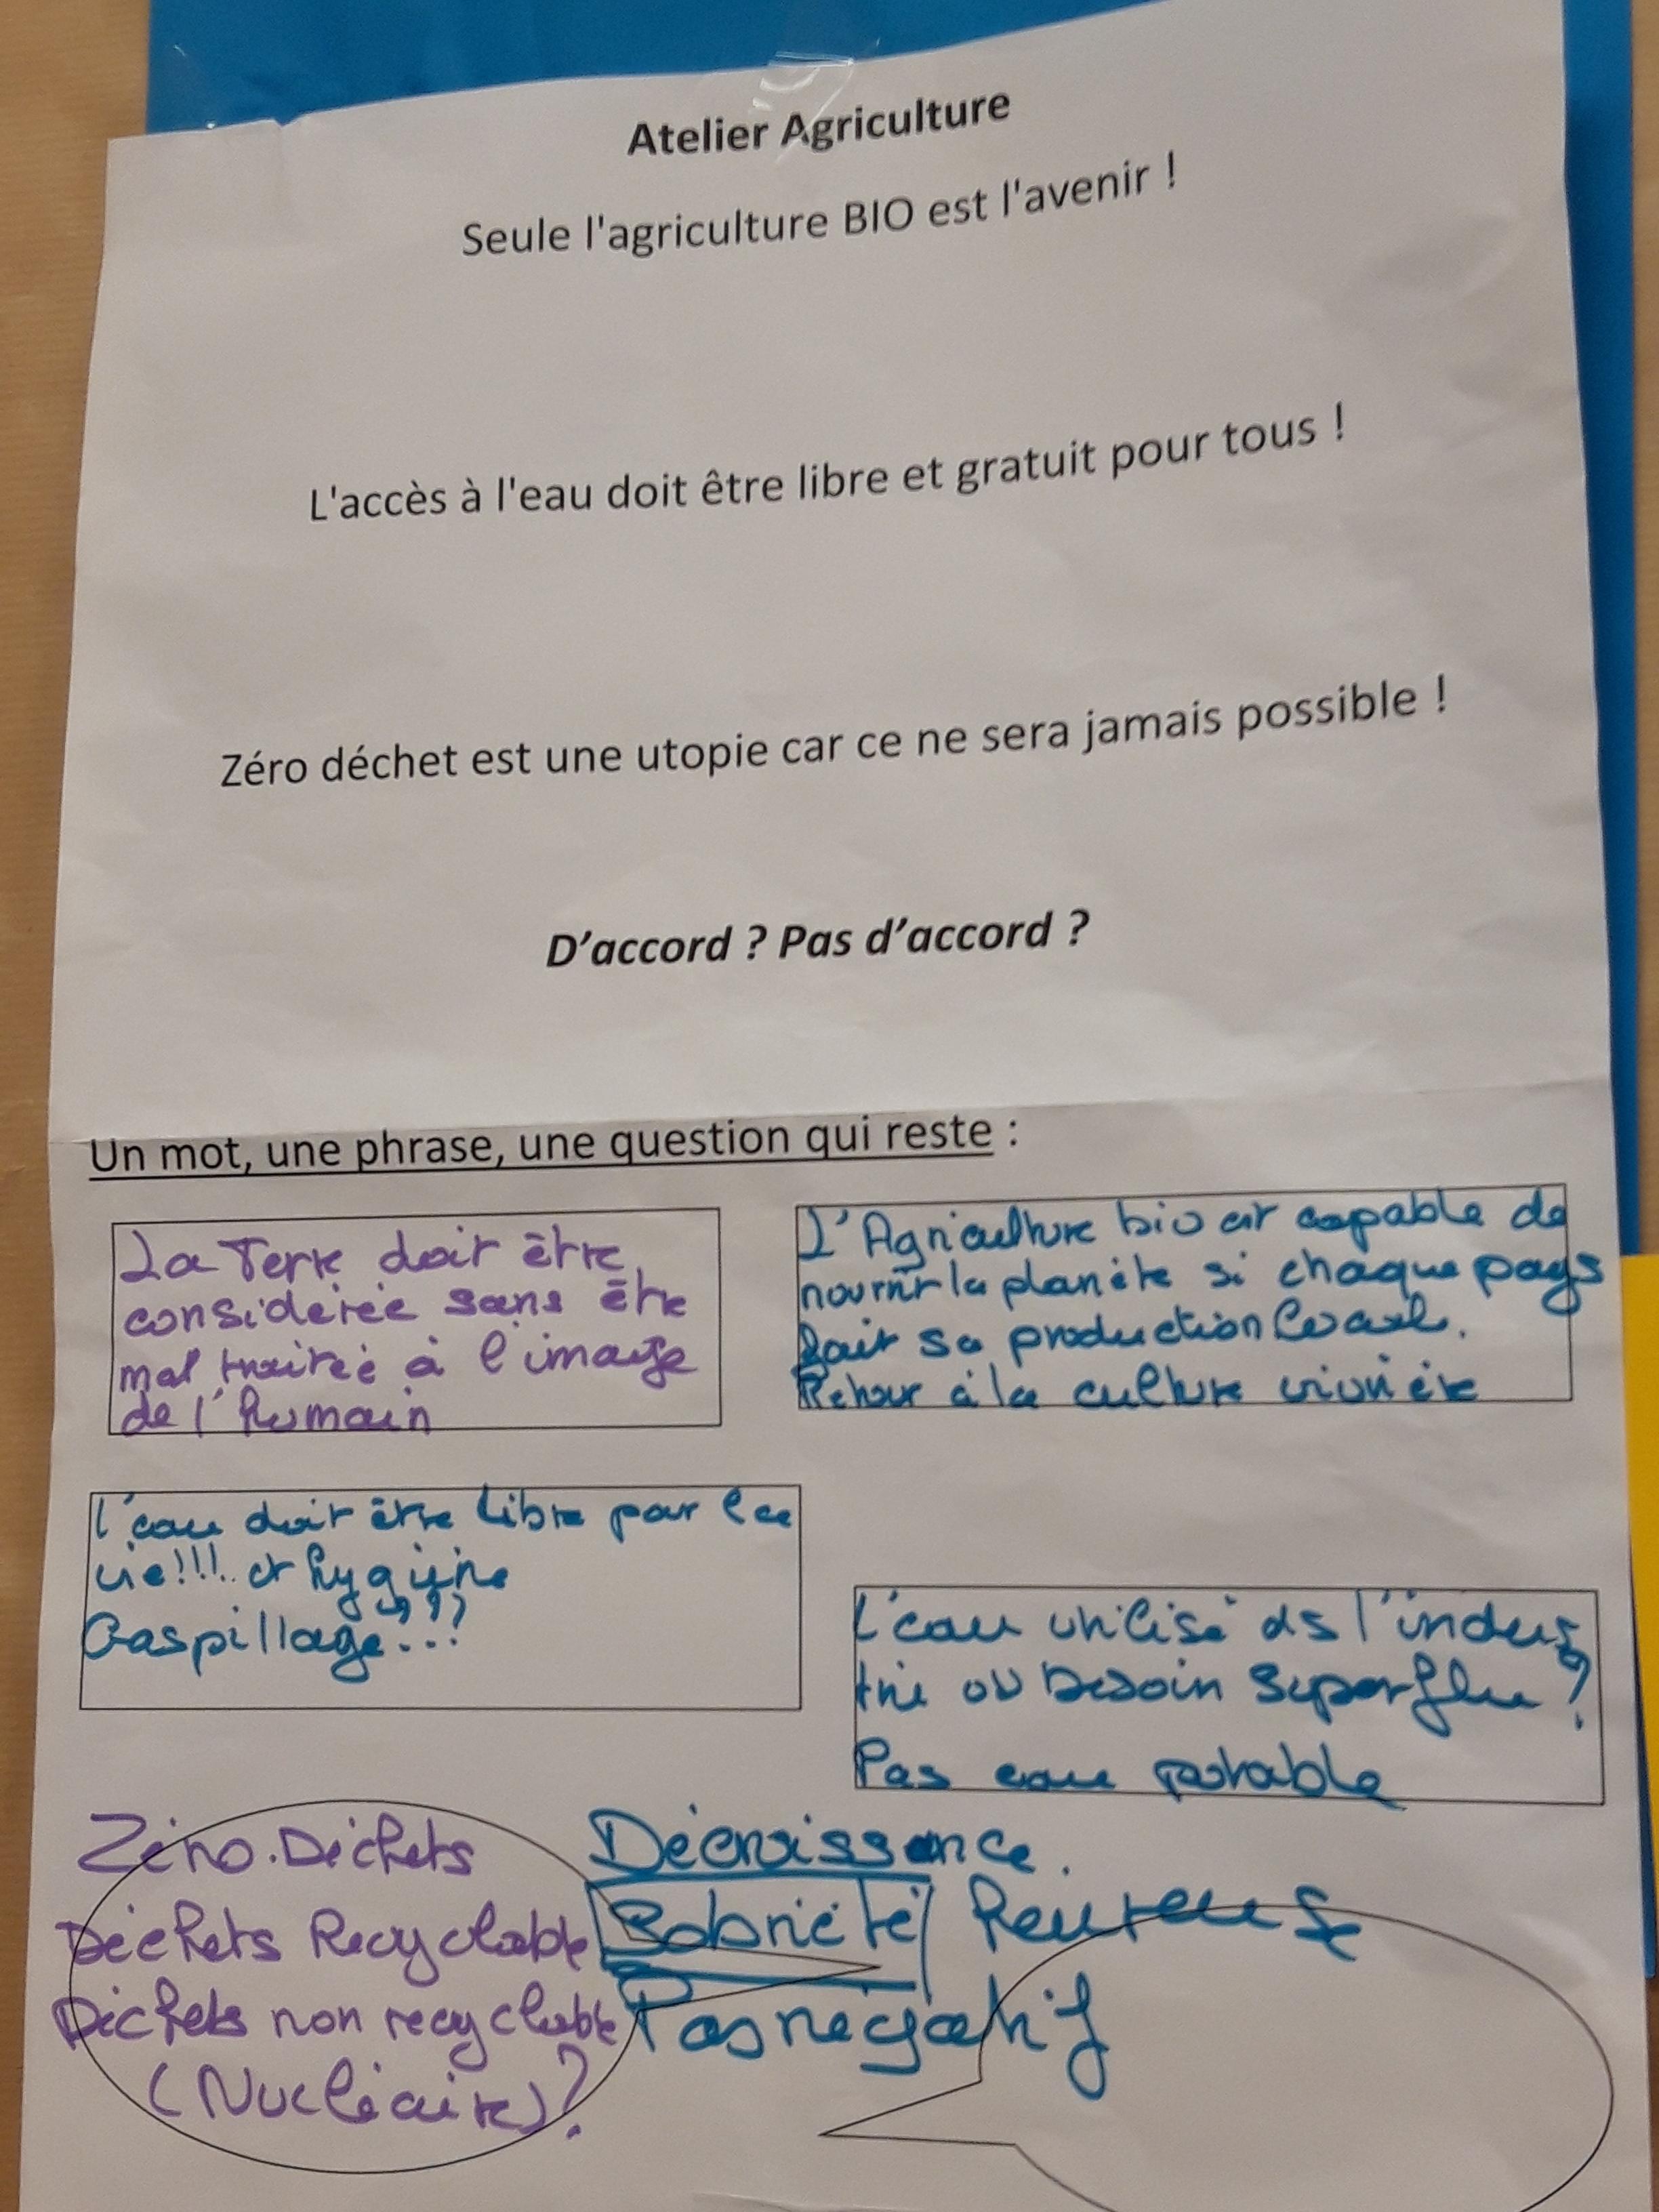 Atelier Agriculture
Seule l'agriculture BIO est l'avenir !
L'accès à l'eau doit être libre et gratuit pour tous !
Zéro déchet est une utopie car ce ne sera jamais possible !
D'accord ? Pas d'accord ?
Un mot, une phrase, une question qui reste :
La Terre doit être
considérée sans être
mal traitée à l'image
de l'humain
L'Agriculture bio est capable de
nourrir la planète si chaque pays
fait sa production locale.
Retour à la culture vivrière
L'eau doit être libre pour la
vie!!!.. et hygiène
Gaspillage...???
L'eau utilisé ds l'indus
trie ou besoin superflu ?
Pas eau potable
Zéro.Déchets
Déchets Recyclable
Déchets non recyclable
(Nucléaire)?
Décroissance.
Sobriété heureuse
Pas négatif